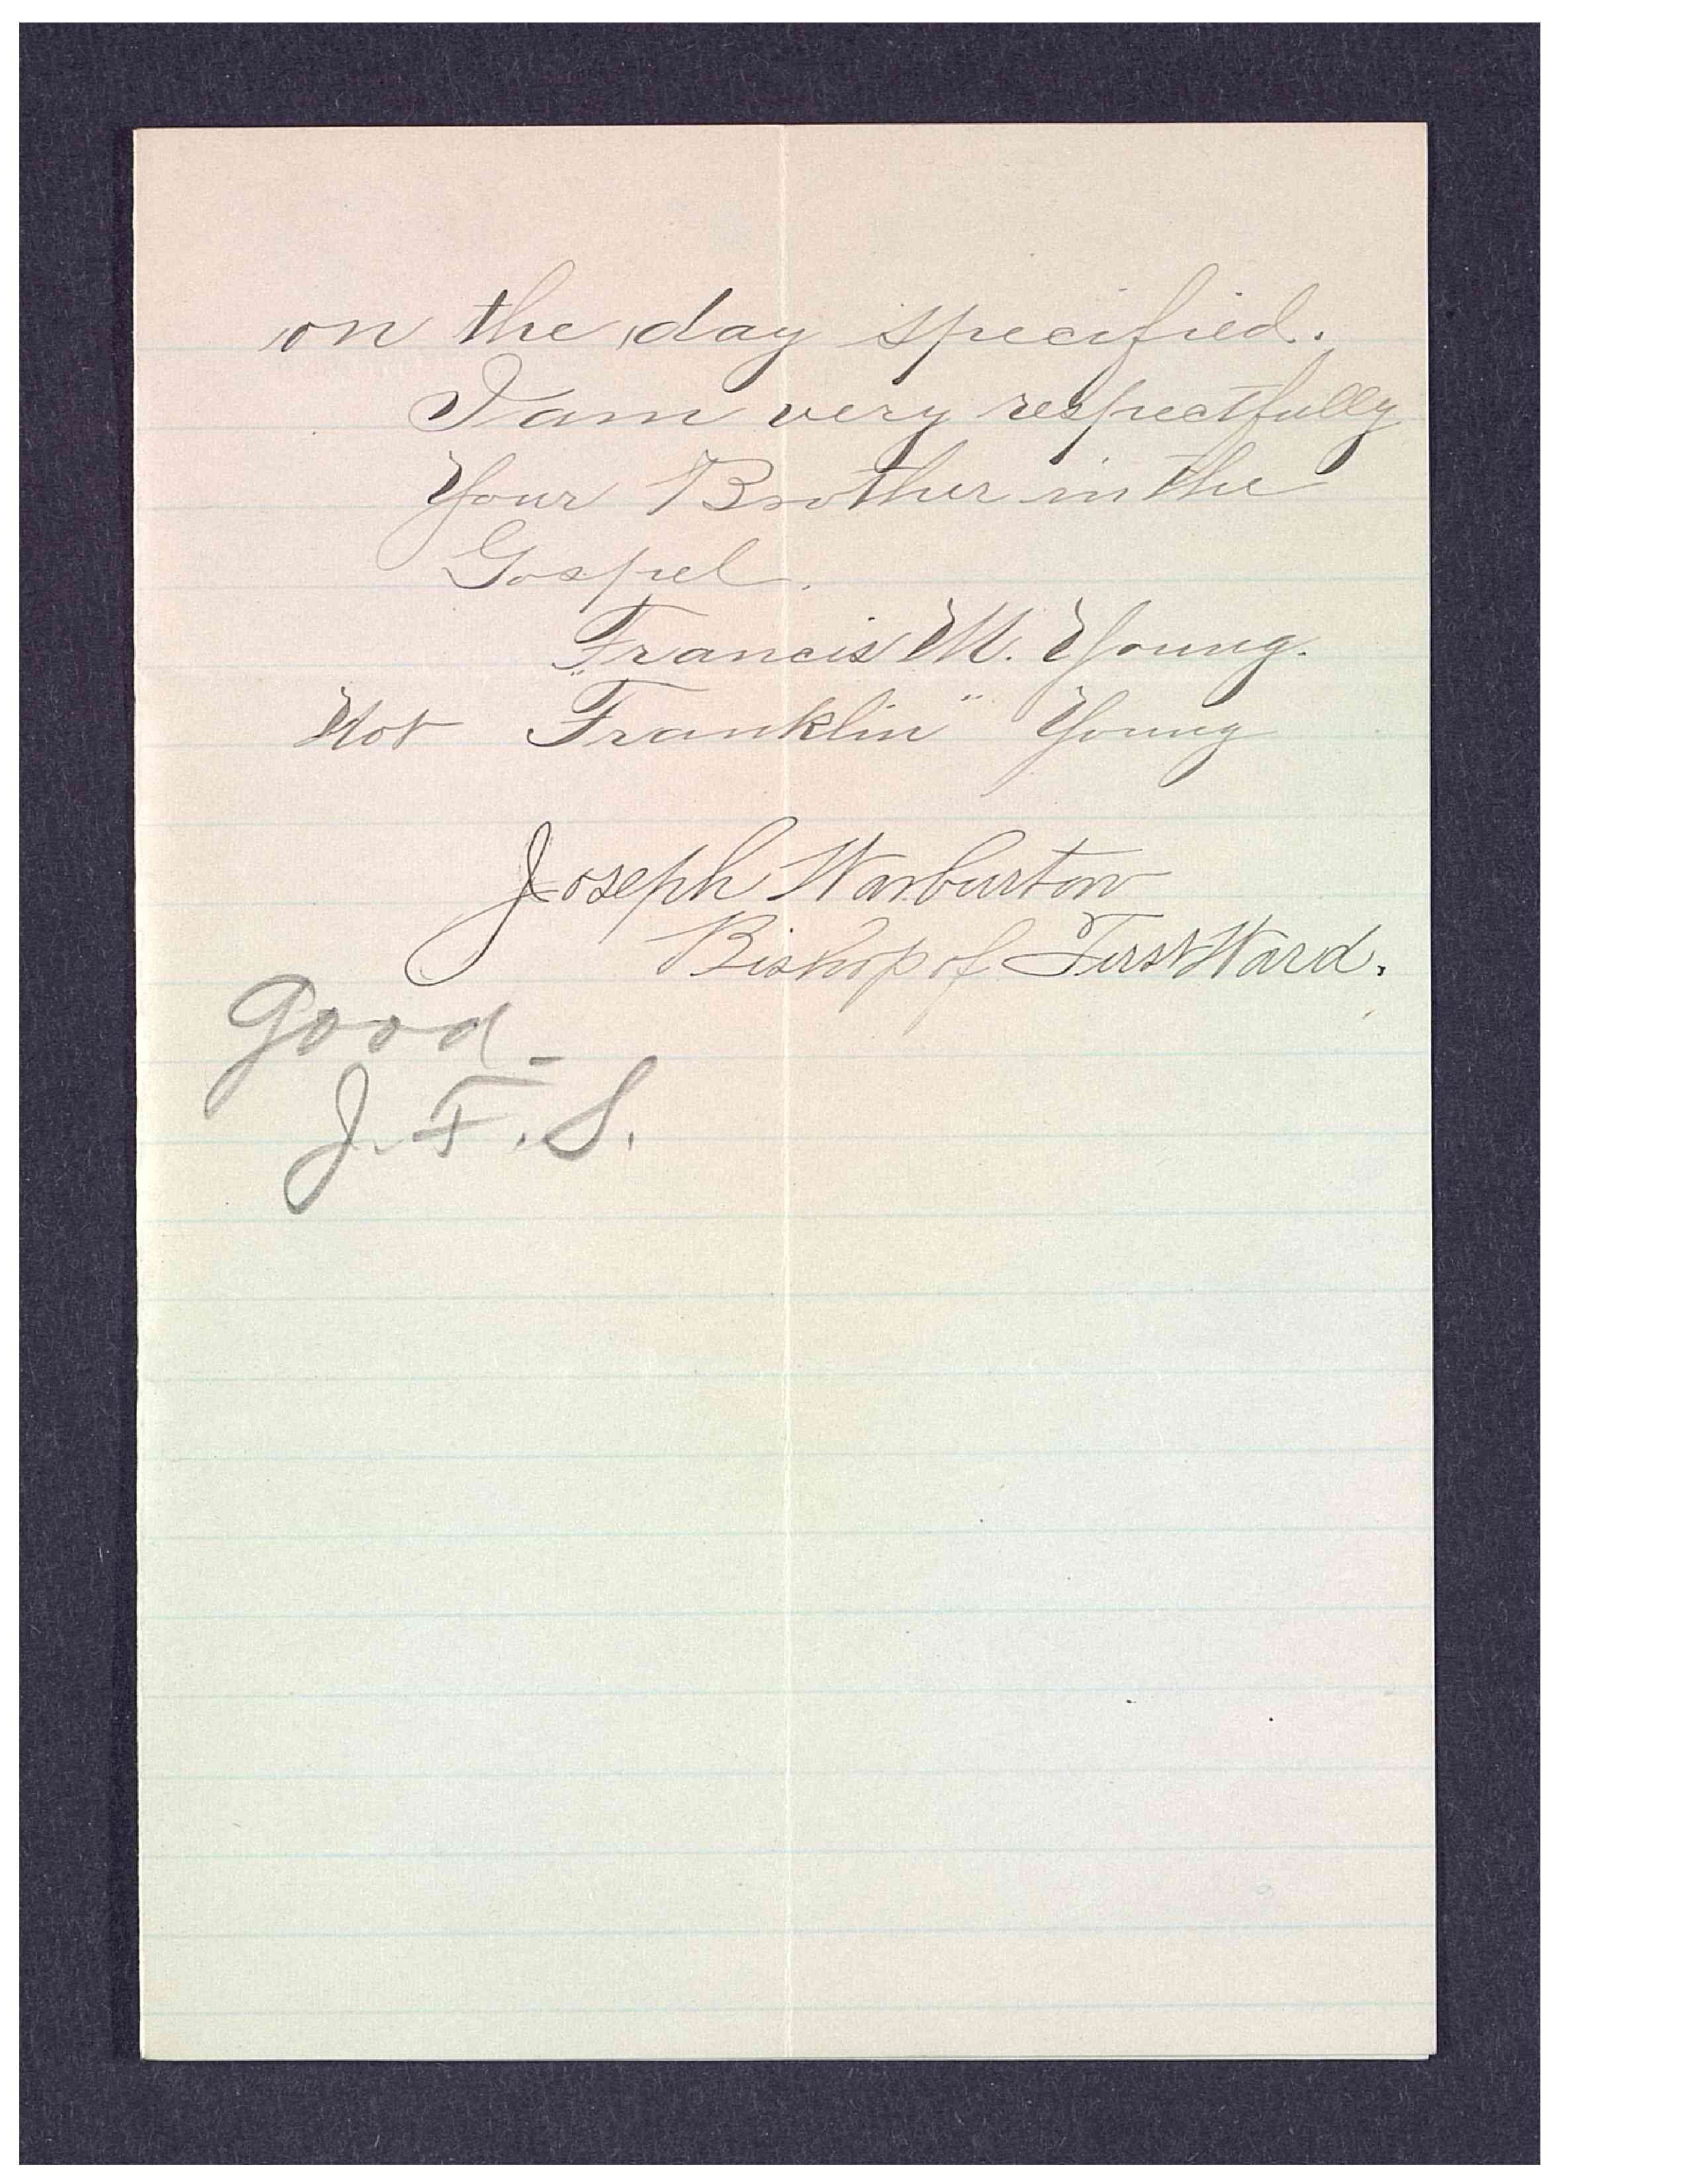 on the day specified.
I am very respectfully
Your Brother in the
Gospel.
Francis M. Young.
Not "Franklin" Young
Joseph Warburton
Bishop of First Ward.
Good_
J. F. S.